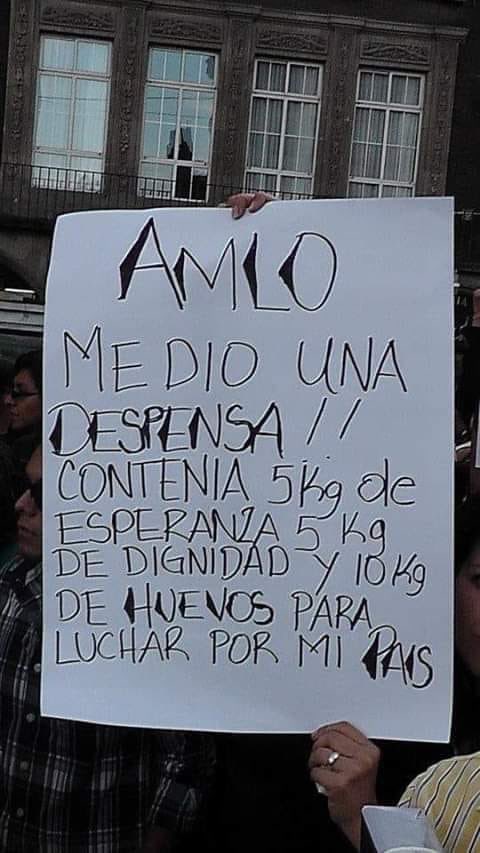 AMLO
MEDIO UNA
DESPENSA!!
CONTENIA 5Kg de
ESPERANZA 5 Kg
DE DIGNIDAD Y 10 Kg
DE HUEVOS PARA
LUCHAR POR MI PAIS